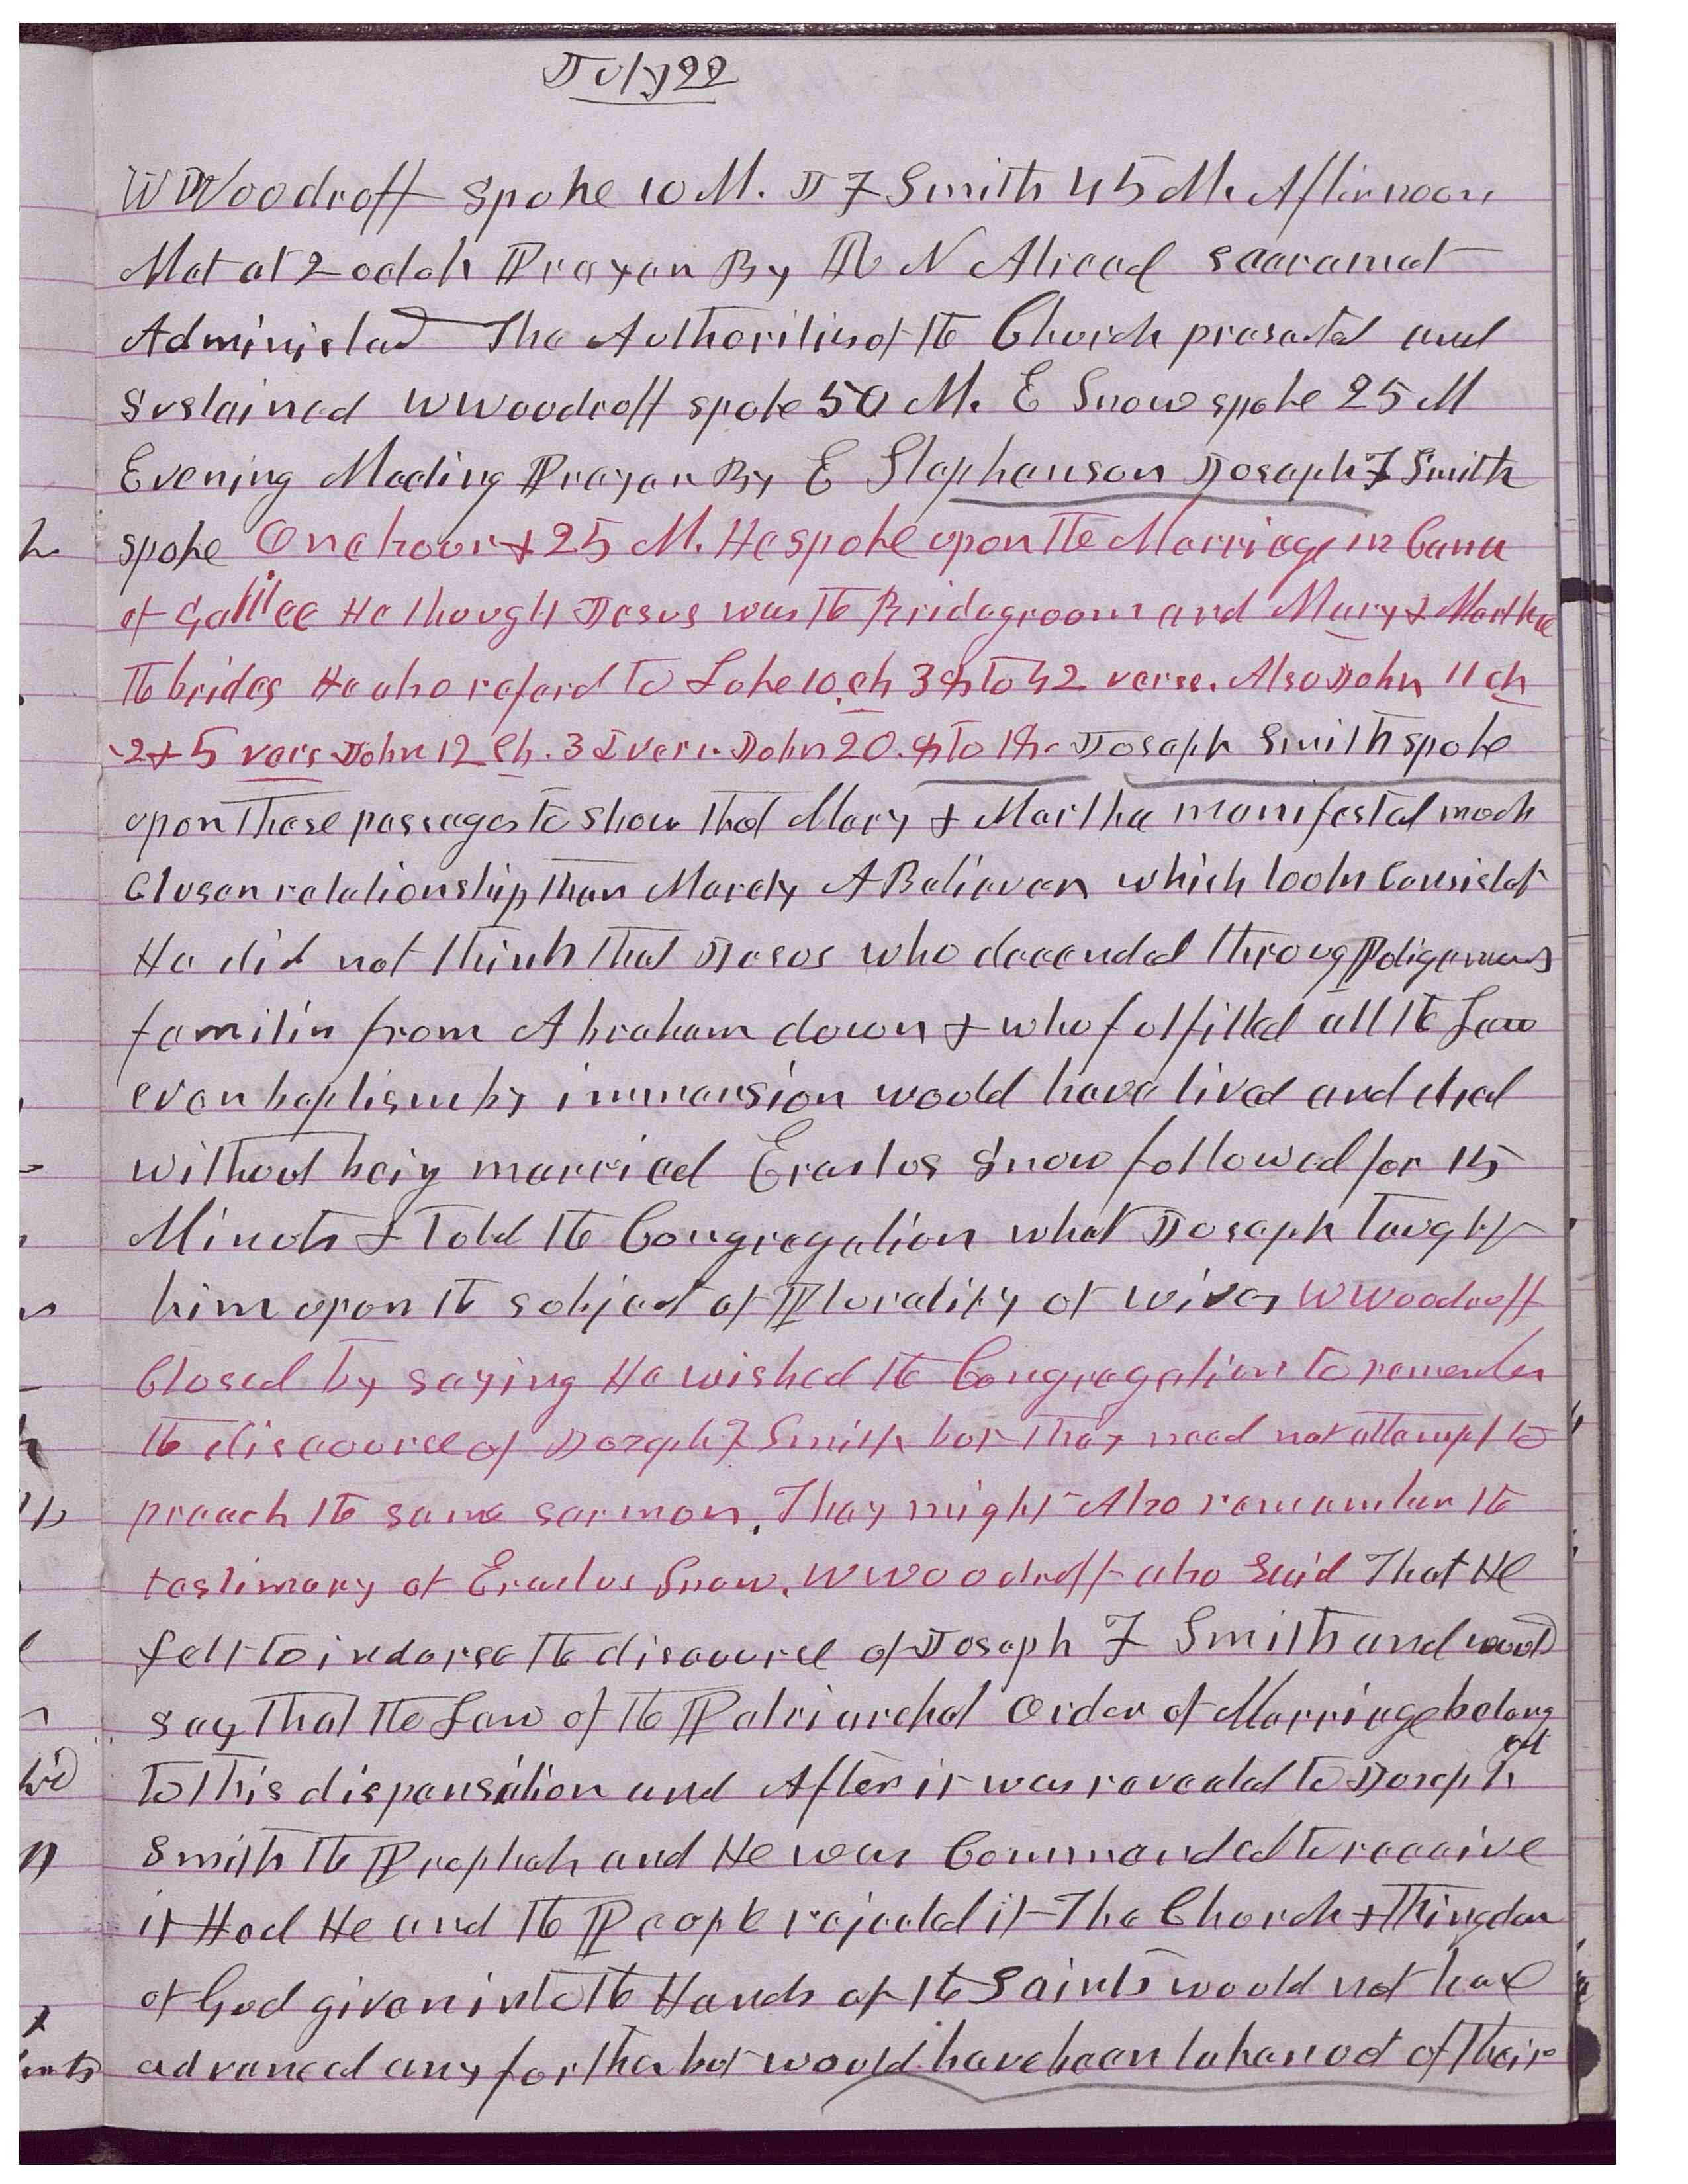 July 22
W Woodruff spoke 10 M. J F Smith 45 M. Afternoon
Met at 2 oclok Prayer By R N Allred sacrament
Administed The Authorities of the Church presented and
sustained W Woodruff spoke 50 M. E Snow spoke 25 M
Evening Meeting Prayer By E Stephenson Joseph F Smith
spoke One hour & 25 M. He spoke upon the Marriage in Cana
of Galilee He thought Jesus was the Bridegroom and Mary & Martha
the brides He also refered to Luke 10 ch 38 to 42 verse. Also John 11 ch
2 & 5 vers John 12 Ch. 3d vers. John 20. 8 to 18. Joseph Smith spoke
upon these passages to show that Mary & Martha manifested much
Closer relationship than Merely A Believer which looks Consistet
He did not think that Jesus who decended throug Poligamous
families from Abraham down & who fulfilled all the Law
even baptism by immersion would have lived and died
without being married Erastus Snow followed for 15
Minuts & Told the Congregation what Joseph taught
him upon the subject of Plurality of wives W Woodruff
Closed by saying He wished the Congregation to remember
the discourse of Joseph F Smith but they need not attempt to
preach the same sermon. They might Also remember the
testimony of Erastus Snow. W Woodruff also said That He
felt to indorse the discourse of Joseph F Smith and would
say that the Law of the Patriarchal Order of Marriage belonged
to this dispensation and After it was revealed to Joseph
Smith the Prophet and He was Commanded to receive
it Had He and the People rejected it The Church & Kingdom
of God given into the Hands of the Saints would not have
advanced any further but would have been taken out of their